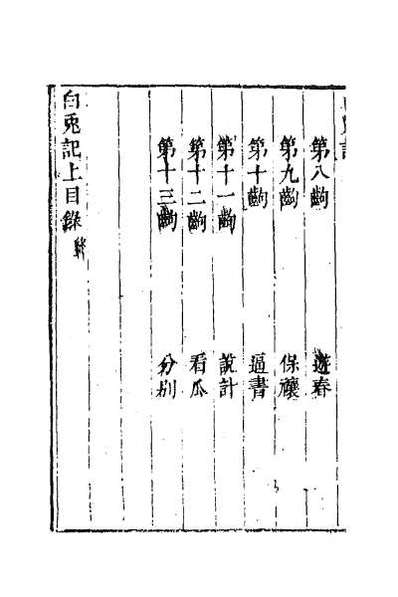 第八齣　遊春
第九齣　保禳
第十齣　逼書
第十一齣　說計
第十二齣　看瓜
第十三齣　分別
白兎記上目錄終